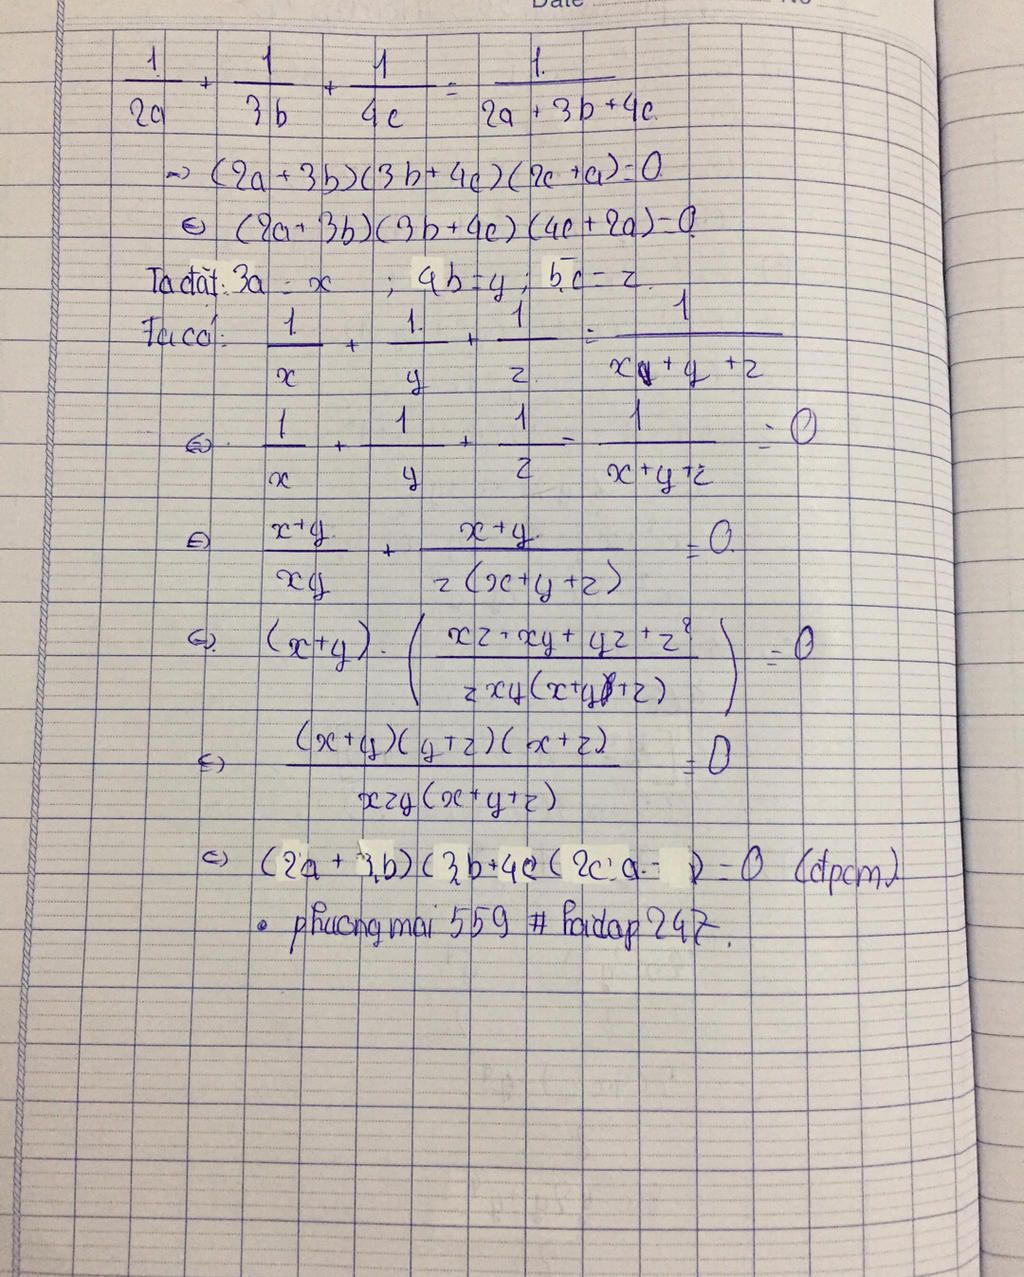 Date No
1/2a + 1/3b + 1/4c = 1/(2a + 3b + 4c)
=> (2a + 3b)(3b + 4c)(2c + a) = 0
<=> (2a + 3b)(3b + 4c)(4c + 2a) = 0
Ta đặt: 3a = x ; 4b = y ; 5c = z.
Ta có: 1/x + 1/y + 1/z = 1/(x + y + z)
<=> 1/x + 1/y + 1/z = 1/(x + y + z) = 0
<=> (x+y)/xy + (x+y)/(z(x+y+z)) = 0
<=> (x+y) . ((zx + xy + yz + zy + z²)/(zxy(x+y+z))) = 0
<=> (x+y)(y+z)(x+z)/(xzy(x+y+z)) = 0
<=> (2a + 3b)(3b + 4c(2c : a = ) = 0 (đpcm)
• phuongmai 559 # hoidap 247.